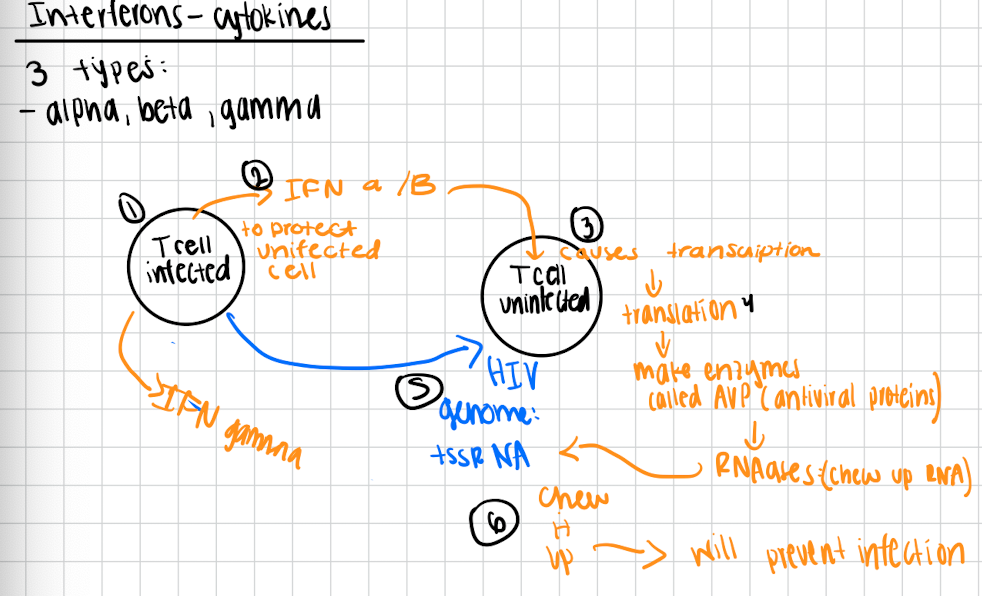 Interferons - cytokines
3 types:
- alpha, beta, gamma
①
T cell
infected
②
IFN a /B
to protect
unifected
cell
③
T cell
uninfected
causes transcription
translation 4
make enzymes
called AVP (antiviral proteins)
RNAases (chew up RNA)
IFN gamma
⑤
HIV
genome:
+ssRNA
⑥
chew
it
up
will prevent infection